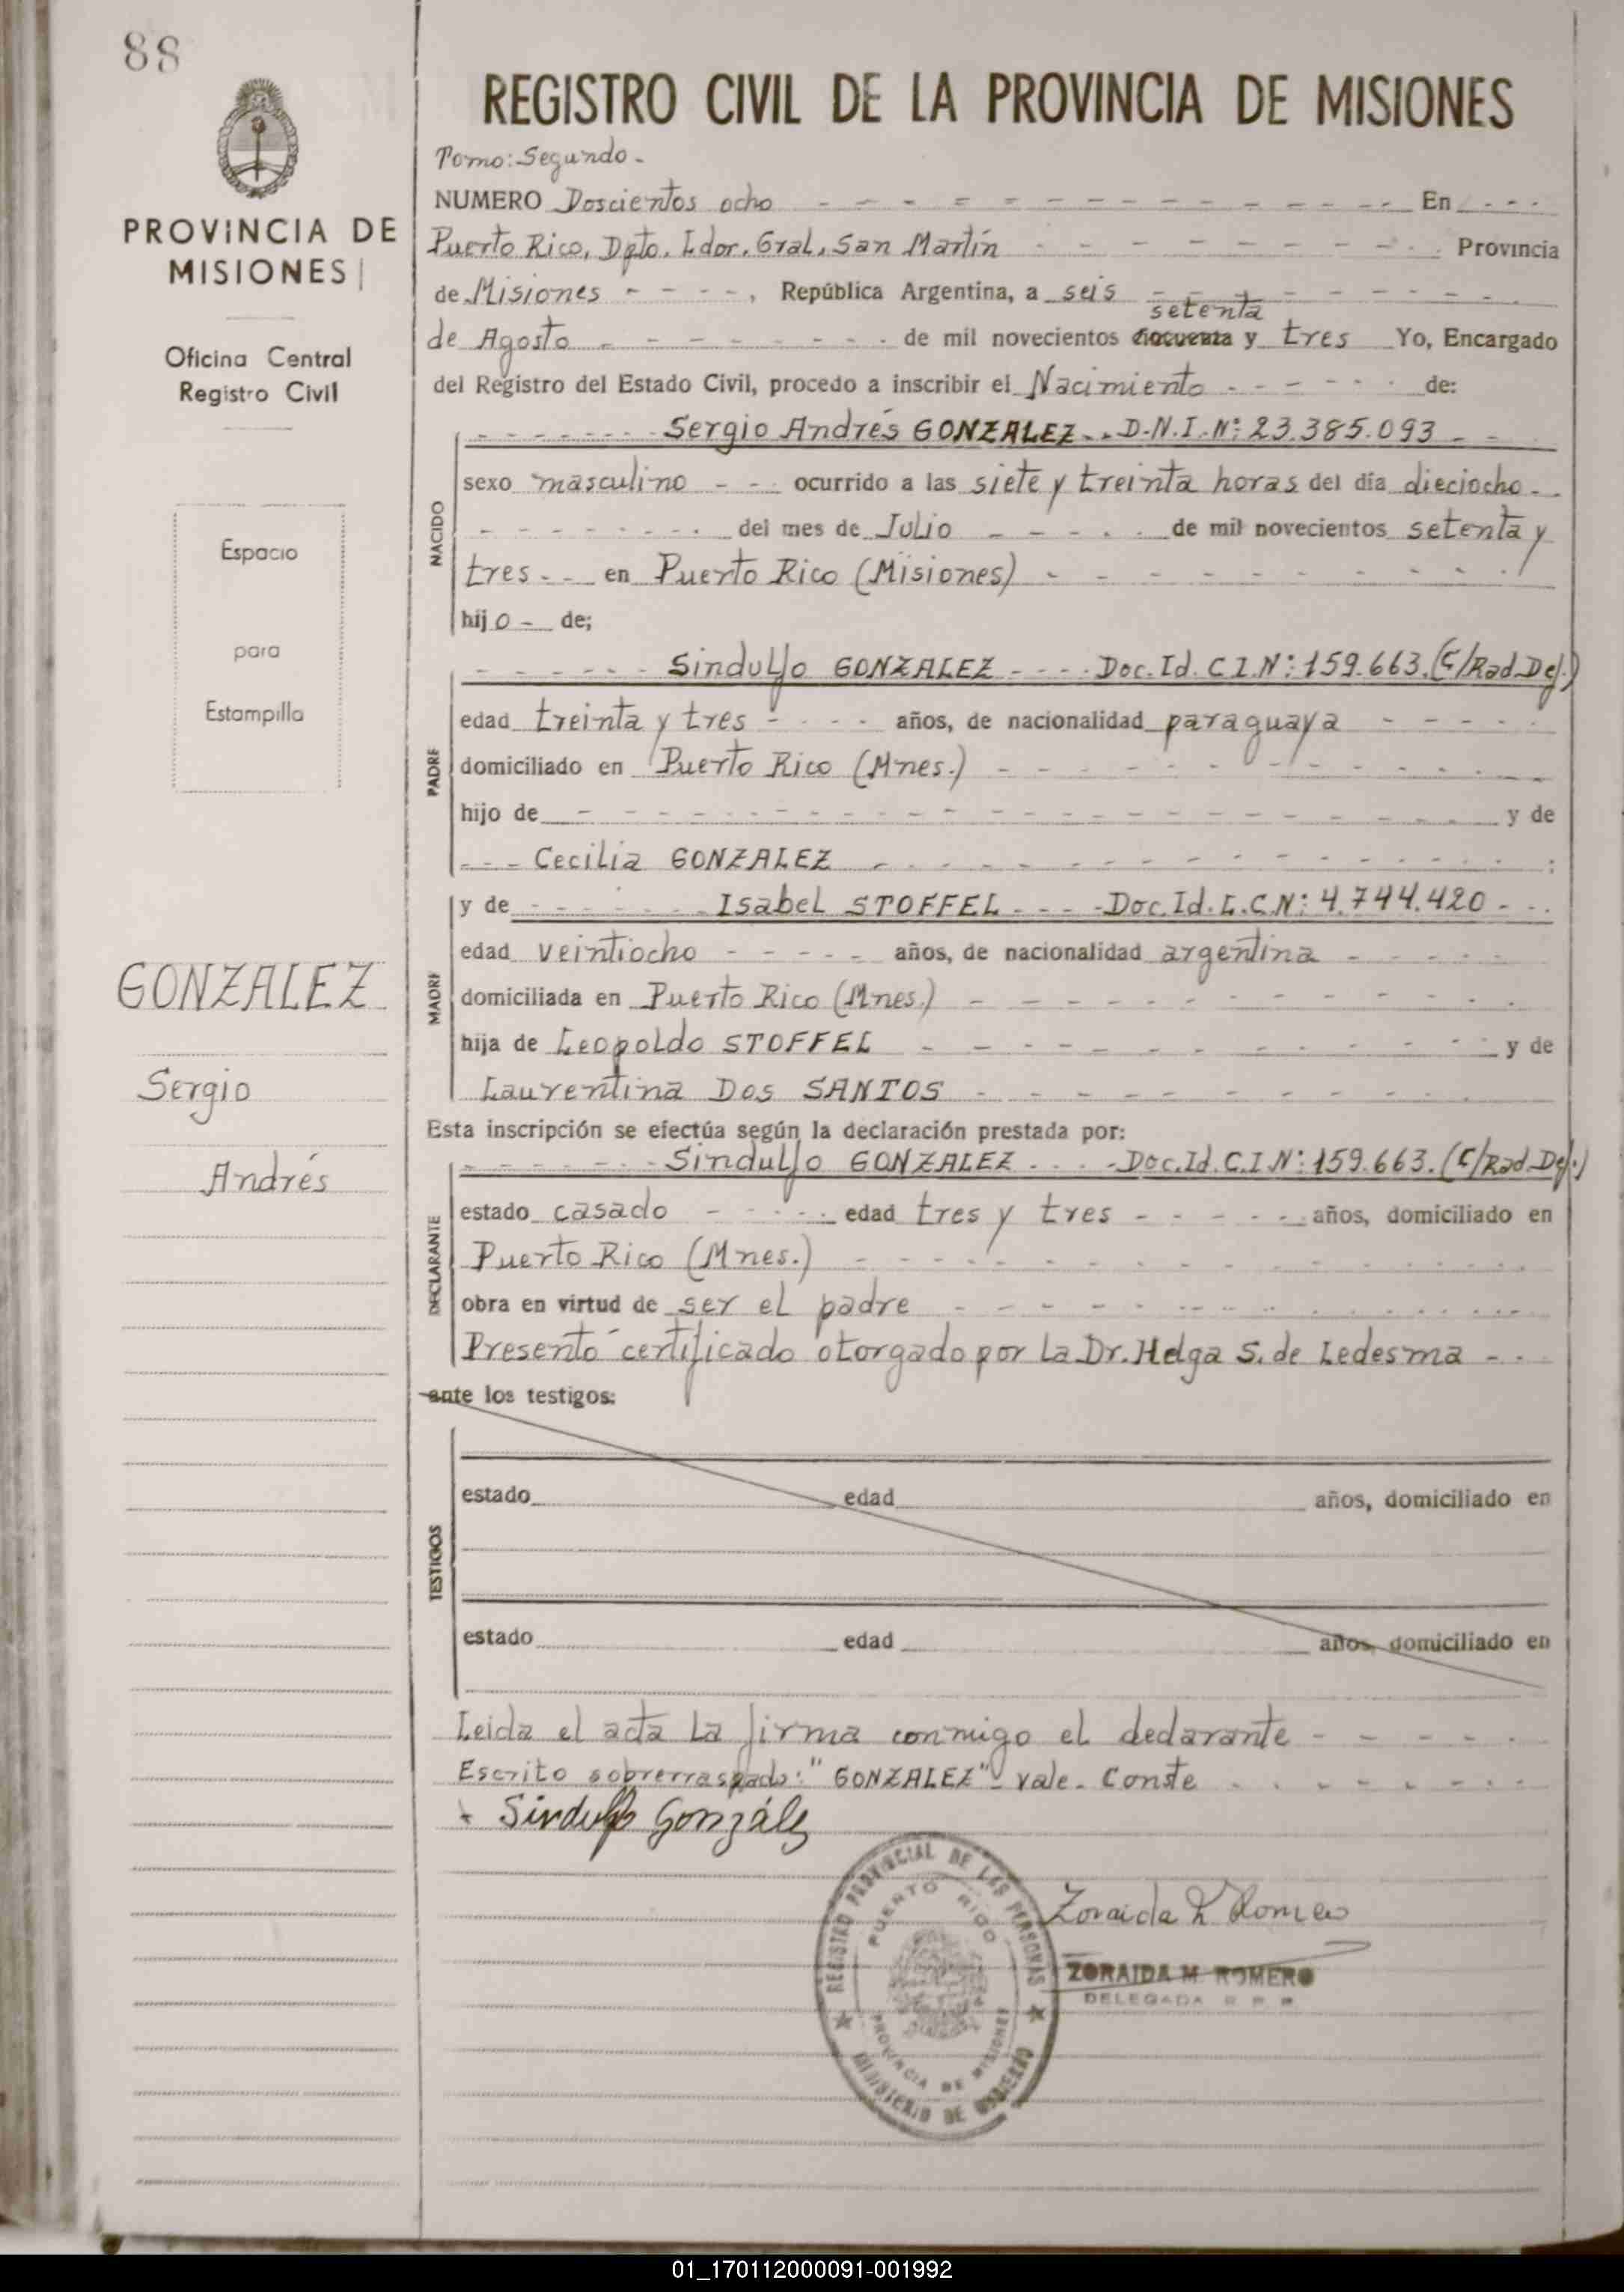 88
PROVINCIA DE
MISIONES
Oficina Central
Registro Civil
Espacio
para
Estampilla
GONZALEZ
Sergio
Andrés
REGISTRO CIVIL DE LA PROVINCIA DE MISIONES
Tomo: Segundo.-
NUMERO Doscientos ocho En
Puerto Rico, Dpto. Ldor. Gral. San Martín Provincia
de Misiones, República Argentina, a seis
setenta
de Agosto de mil novecientos cincuenta y tres Yo, Encargado
del Registro del Estado Civil, procedo a inscribir el Nacimiento de:
NACIDO
Sergio Andrés GONZALEZ.. D.N.I.Nº: 23.385.093
sexo masculino ocurrido a las siete y treinta horas del día dieciocho
del mes de Julio de mil novecientos setenta y
tres en Puerto Rico (Misiones)
hijo de;
PADRE
Sindulfo GONZALEZ Doc. Id. C.I.Nº: 159.663. (C/Rad.Def.)
edad treinta y tres años, de nacionalidad paraguaya
domiciliado en Puerto Rico (Mnes.)
hijo de y de
Cecilia GONZALEZ
MADRE
y de Isabel STOFFEL Doc. Id. L.C.Nº: 4.744.420
edad veintiocho años, de nacionalidad argentina
domiciliada en Puerto Rico (Mnes.)
hija de Leopoldo STOFFEL y de
Laurentina Dos SANTOS
Esta inscripción se efectúa según la declaración prestada por:
DECLARANTE
Sindulfo GONZALEZ Doc. Id. C.I.Nº: 159.663. (C/Rad.Def.)
estado casado edad tres y tres años, domiciliado en
Puerto Rico (Mnes.)
obra en virtud de ser el padre
Presentó certificado otorgado por la Dr. Helga S. de Ledesma
ante los testigos:
TESTIGOS
estado edad años, domiciliado en
estado edad años, domiciliado en
Leida el acta la firma conmigo el declarante
Escrito sobrerraspado: "GONZALEZ" vale. Conste
Sindulfo González
REGISTRO PROVINCIAL DE LAS PERSONAS
PUERTO RICO
PROVINCIA DE MISIONES
MINISTERIO DE GOBIERNO
Zoraida M Romero
ZORAIDA M. ROMERO
DELEGADA R. P. P.
01_170112000091-001992